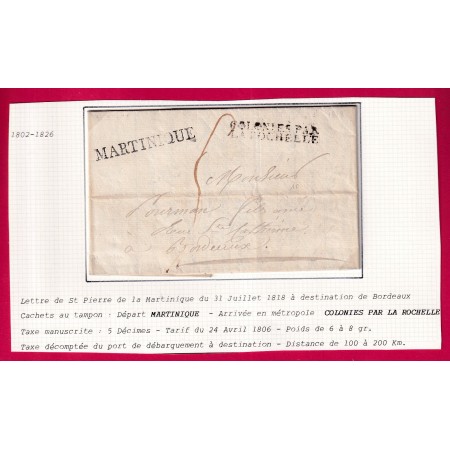 1802-1826
MARTINIQUE
COLONIES PAR
LA ROCHELLE
5
Monsieur
fils aîné
à Bordeaux
Lettre de St Pierre de la Martinique du 31 Juillet 1818 à destination de Bordeaux
Cachets au tampon : Départ MARTINIQUE - Arrivée en métropole COLONIES PAR LA ROCHELLE
Taxe manuscrite : 5 Décimes - Tarif du 24 Avril 1806 - Poids de 6 à 8 gr.
Taxe décomptée du port de débarquement à destination - Distance de 100 à 200 Km.